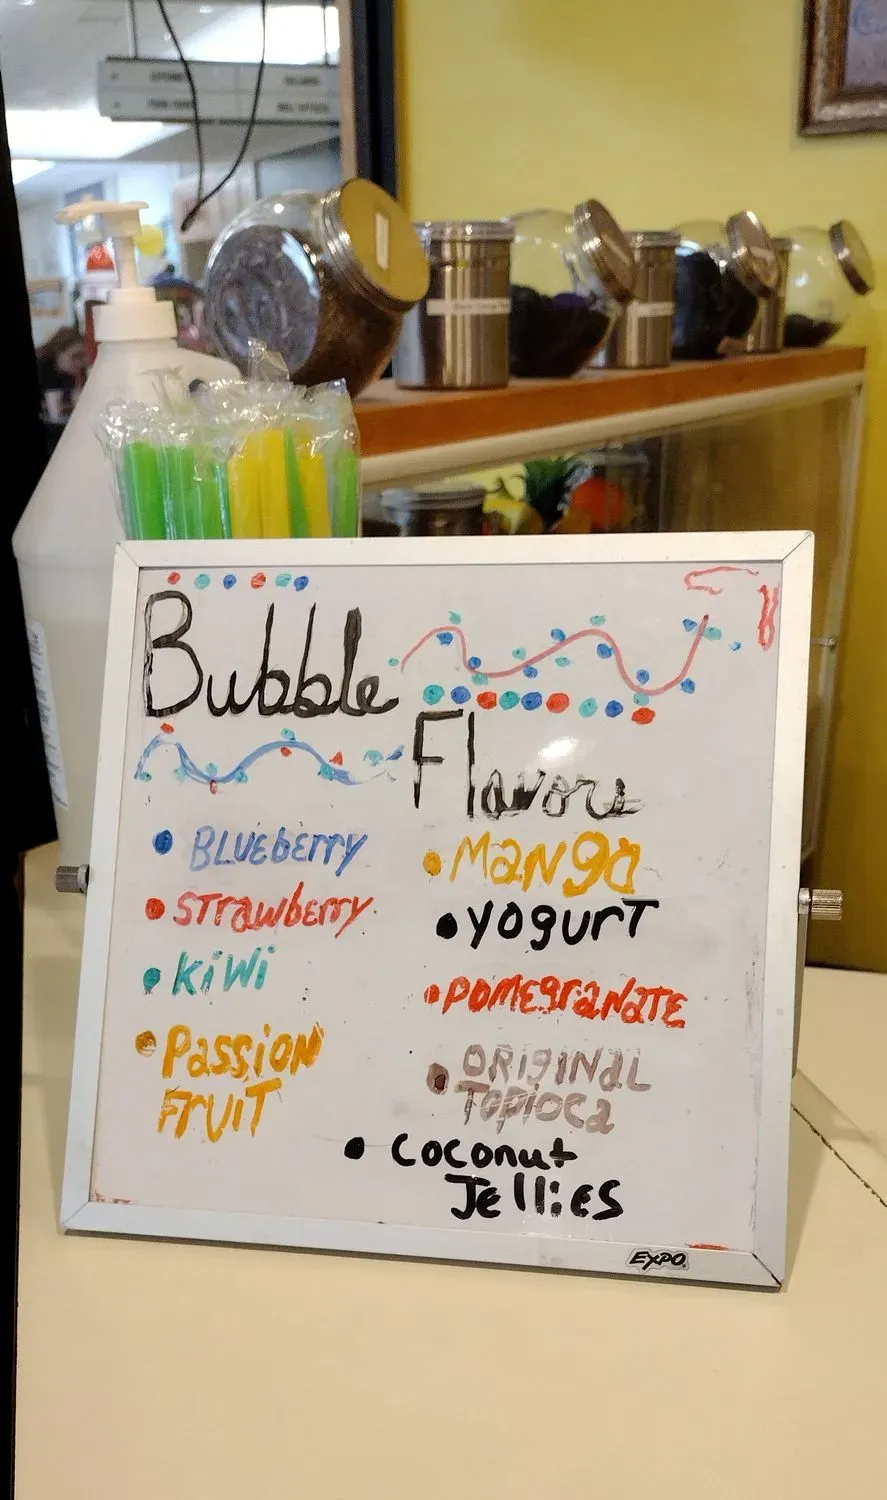 Bubble
Flavors
BLUEbErry
STrawbErry
KiWi
PASSiON
FRUiT
MANgo
YOgURT
POMEgraNATE
ORIgINAL
TOPiOCA
COCONUt
JEllIES
EXPO